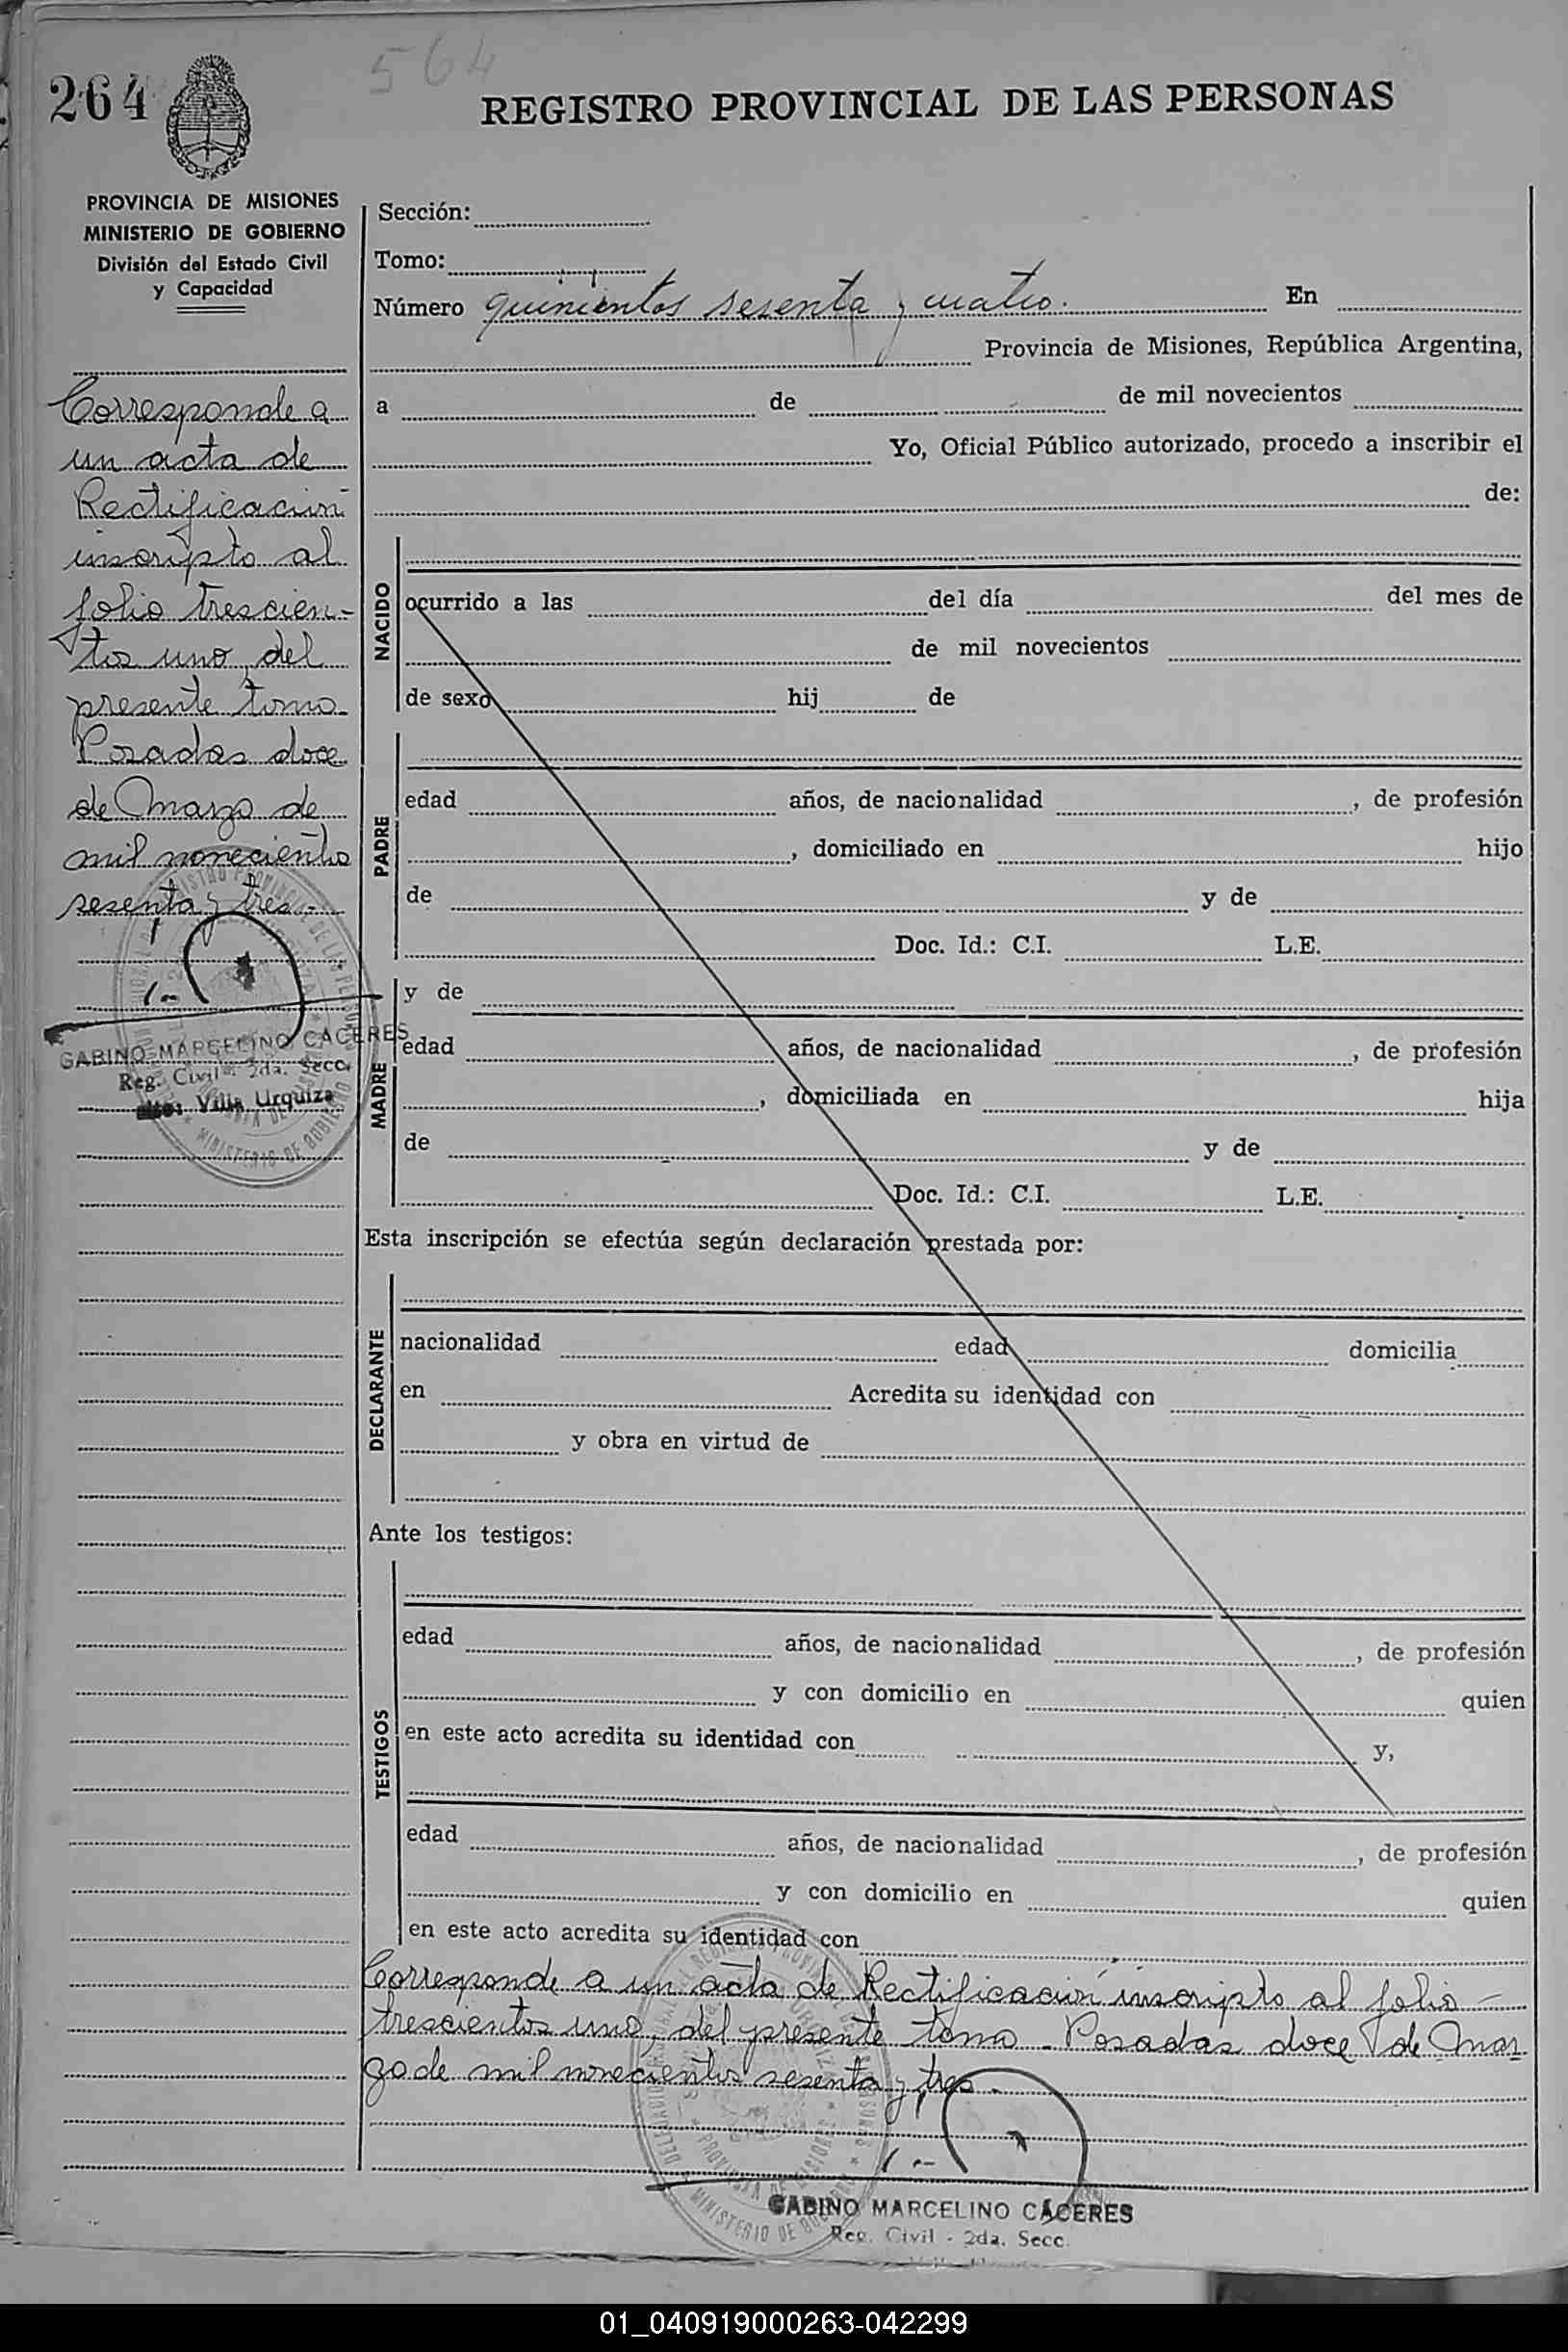 264
564
REGISTRO PROVINCIAL DE LAS PERSONAS
PROVINCIA DE MISIONES
MINISTERIO DE GOBIERNO
División del Estado Civil
y Capacidad
Corresponde a
un acta de
Rectificación
inscripto al
folio trescien-
tos uno, del
presente tomo
Posadas doce
de Marzo de
mil novecientos
sesenta y tres.-
GABINO MARCELINO CACERES
Reg. Civil - 2da. Secc.
Villa Urquiza
Sección:
Tomo:
Número quinientos sesenta y cuatro. En
Provincia de Misiones, República Argentina,
a de de mil novecientos
Yo, Oficial Público autorizado, procedo a inscribir el
de:
NACIDO
ocurrido a las del día del mes de
de mil novecientos
de sexo hij de
PADRE
edad años, de nacionalidad , de profesión
, domiciliado en hijo
de y de
Doc. Id.: C.I. L.E.
MADRE
y de
edad años, de nacionalidad , de profesión
, domiciliada en hija
de y de
Doc. Id.: C.I. L.E.
Esta inscripción se efectúa según declaración prestada por:
DECLARANTE
nacionalidad edad domicilia
en Acredita su identidad con
y obra en virtud de
Ante los testigos:
TESTIGOS
edad años, de nacionalidad , de profesión
y con domicilio en quien
en este acto acredita su identidad con y,
edad años, de nacionalidad , de profesión
y con domicilio en quien
en este acto acredita su identidad con
Corresponde a un acta de Rectificación inscripto al folio -
trescientos uno, del presente tomo - Posadas doce de Mar
zo de mil novecientos sesenta y tres.
GABINO MARCELINO CÁCERES
Reg. Civil - 2da. Secc.
01_040919000263-042299